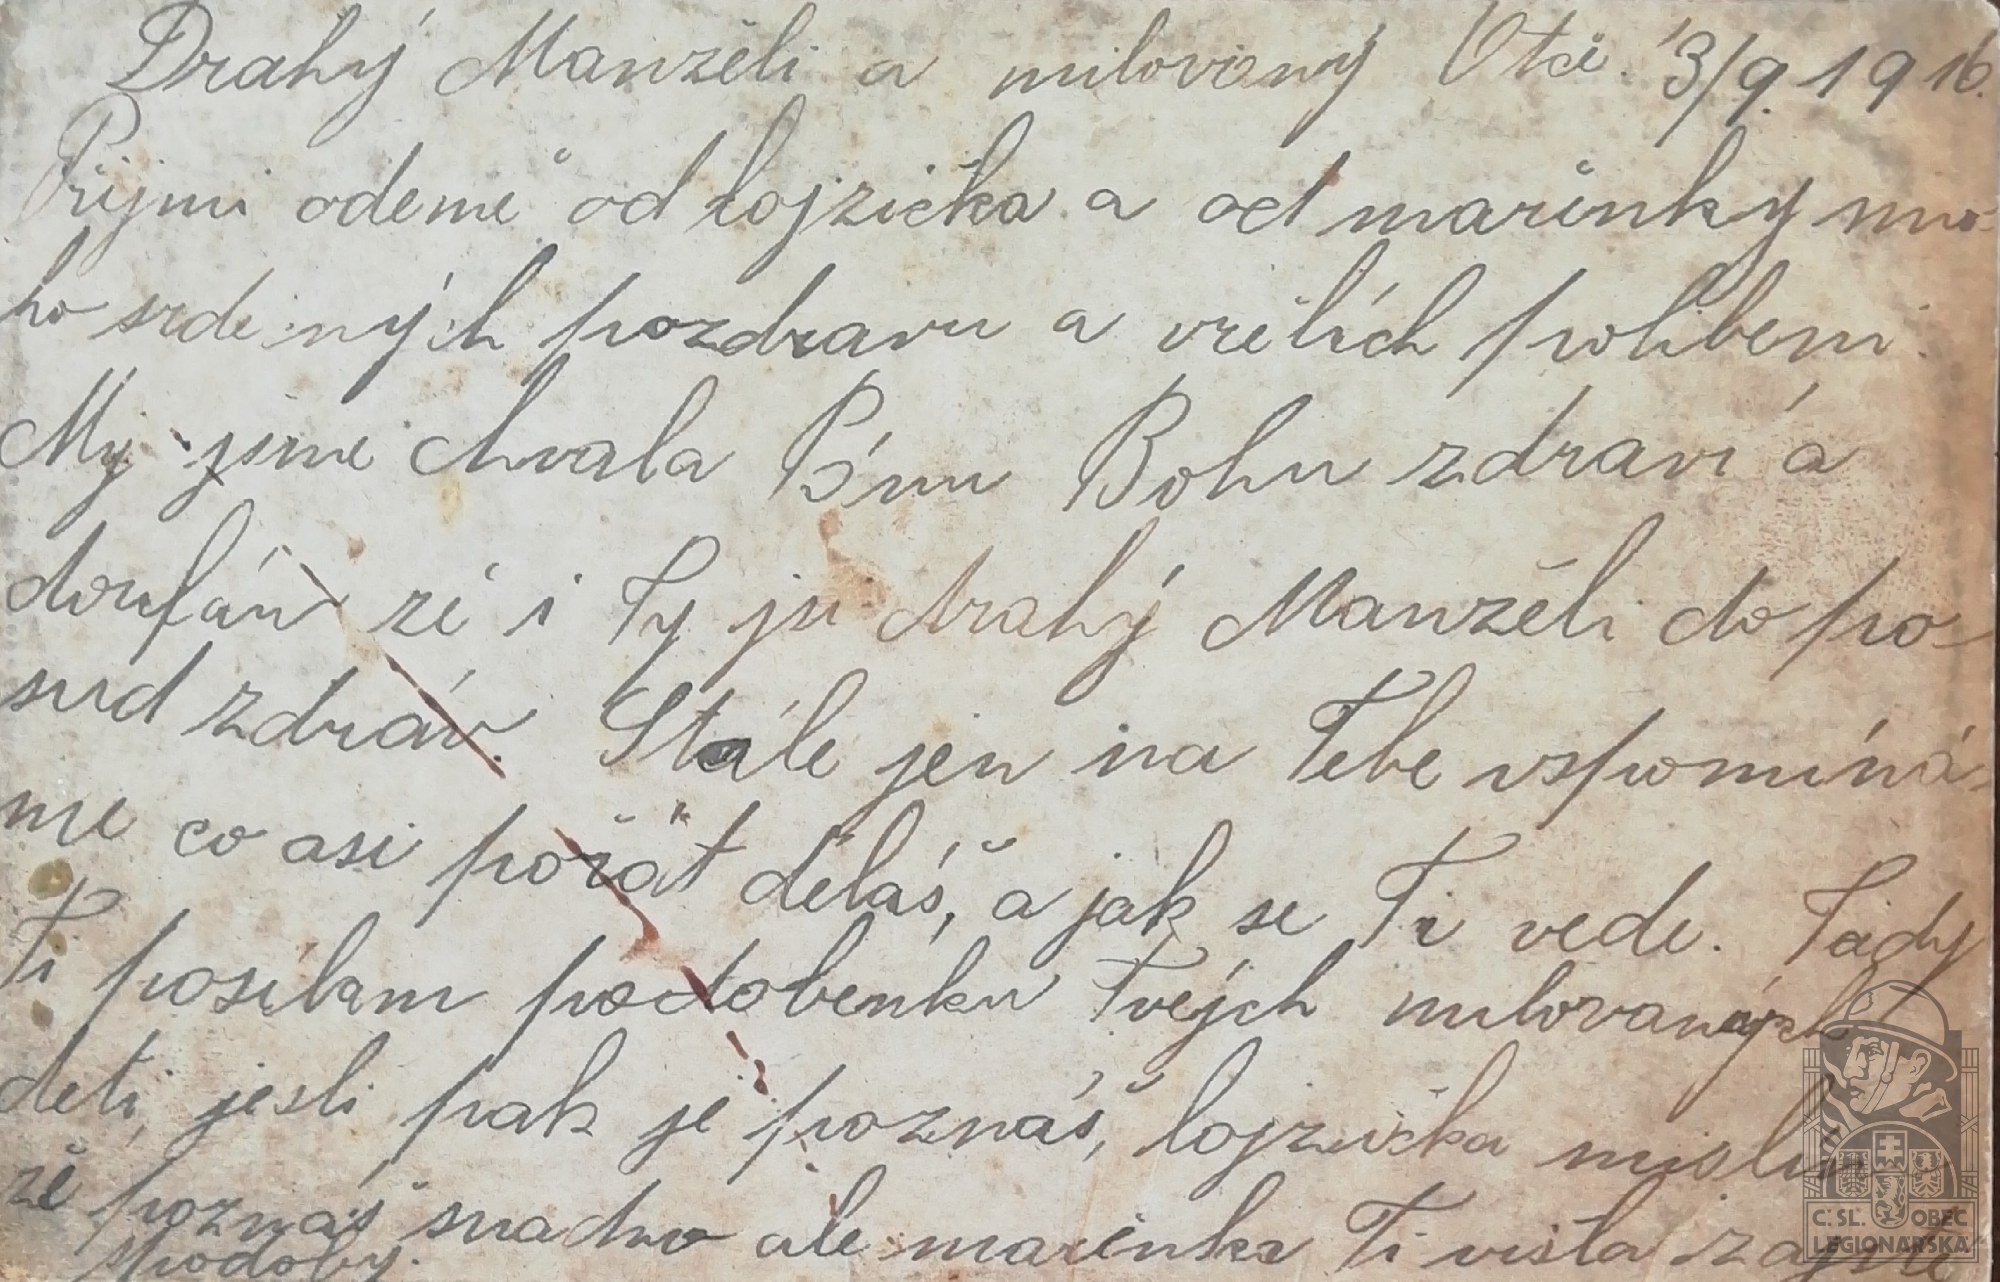 Drahý Manželi a milovaný Otče. 3/9. 1916.
Přijmi odemě od lojzička a od mařenky mno-
ho srdečných pozdravu a vřelích polibeni.
My jsme chvala Pánu Bohu zdravi a
doufán žé i Ty jsi drahý Manželi do po-
sud zdráv. Stále jen na Tebe vspomíná-
me co asi pořát děláš, a jak se Ti vede. Tady
Ti posilám podobenku Tvéjch milovanych
deti, jesli pak je poznáš, lojzička mislim
žě poznáš snadno ale mařenka Ti višla z
spodoby.
C.SL. OBEC
LEGIONÁŘSKÁ